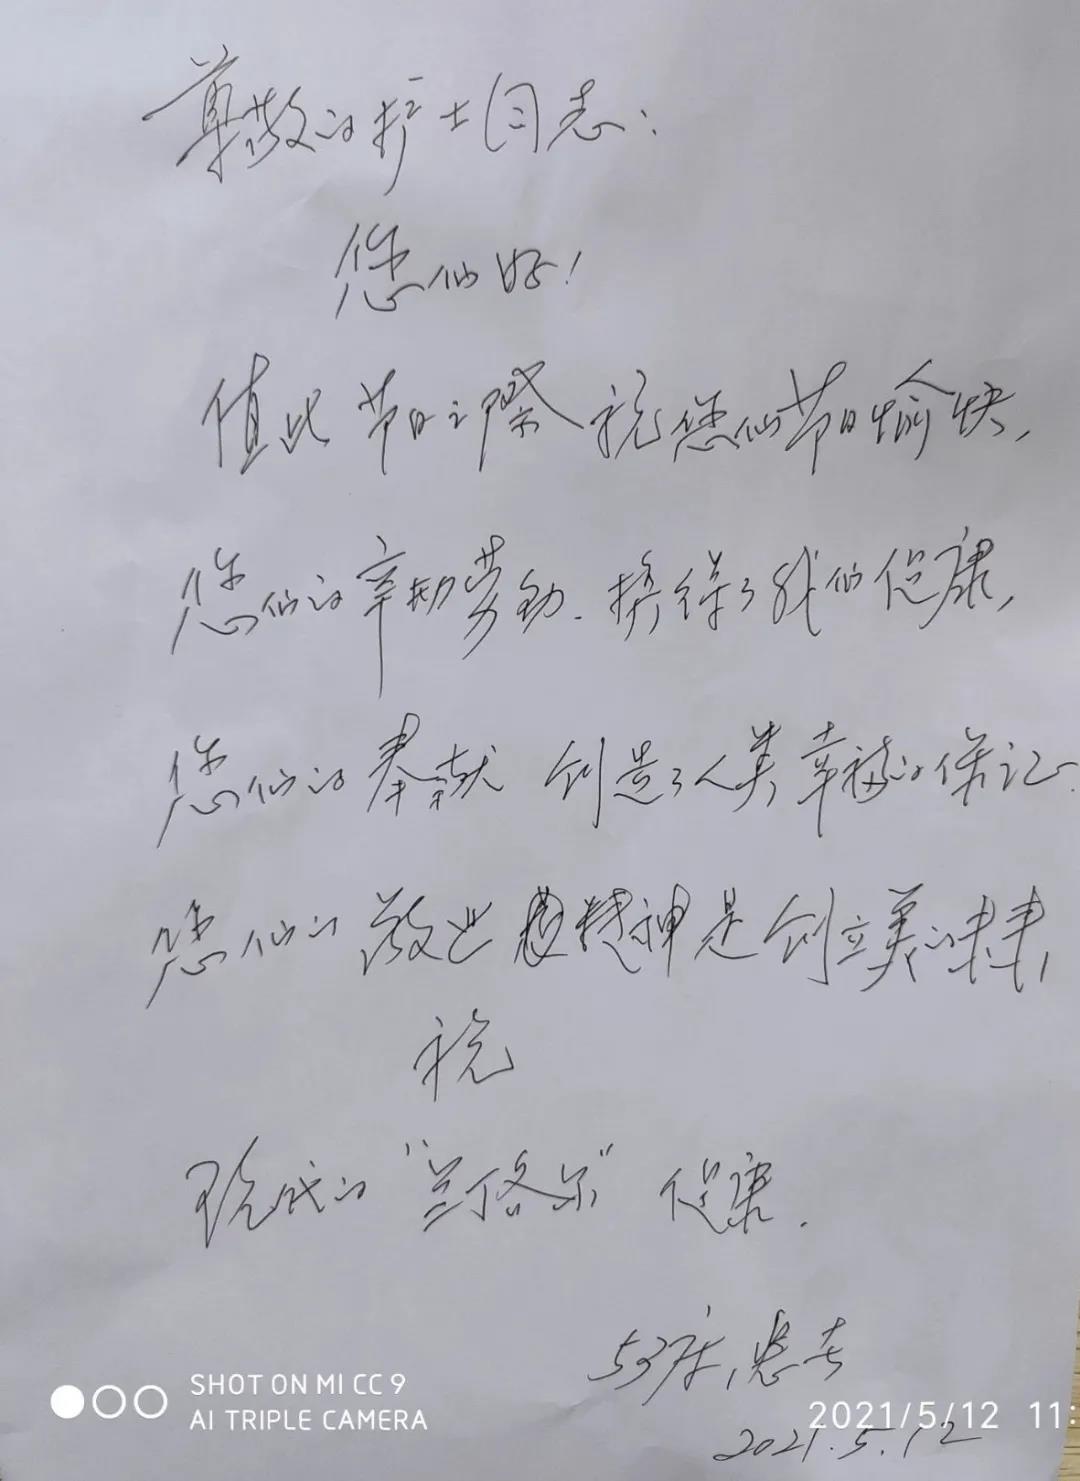 尊敬的护士同志:
您们好!
值此节日之際祝您们节日愉快,
您们的辛勤劳动.换得了我们健康,
您们的奉献创造了人类幸福的保证.
您们的敬业精神是创立美的未来,
祝
现代的“兰丁格尔”健康.
53床,患者
2021.5.12
SHOT ON MI CC 9
AI TRIPLE CAMERA
2021/5/12 11: